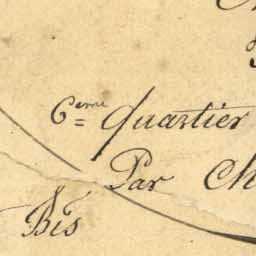 6eme Quartier
Par Ch
Bis